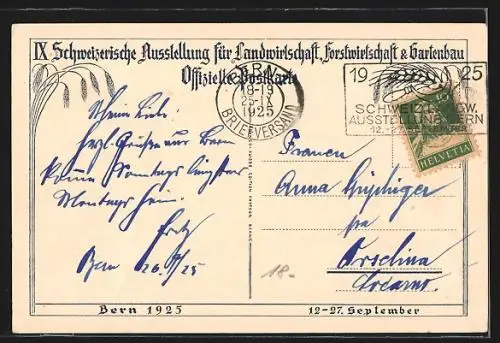 IX. Schweizerische Ausstellung für Landwirtschaft, Forstwirtschaft & Gartenbau
Offizielle Postkarte
BERN
18-19
25.IX
1925
BRIEFVERSAND
19 25
SCHWEIZ. LANDW.
AUSSTELLUNG BERN
12.-27. SEPTEMBER
10
HELVETIA
Mein Lieb!
Herzl. Grüsse aus Bern
komme Sonntags längstens
Montags heim.
Fritz
Bern 26.9/25
Frauen
Anna
Orselina
Locarno.
18.-
Bern 1925
12-27. September